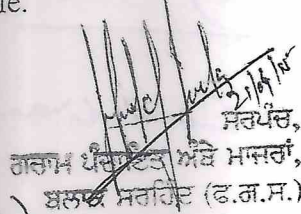 le.
21/9/15
ਸਰਪੰਚ,
ਗਰਾਮ ਪੰਚਾਇਤ ਅੰਬੇ ਮਾਜਰਾਂ,
ਬਲਾਕ ਸਰਹਿੰਦ (ਫ.ਗ.ਸ.)